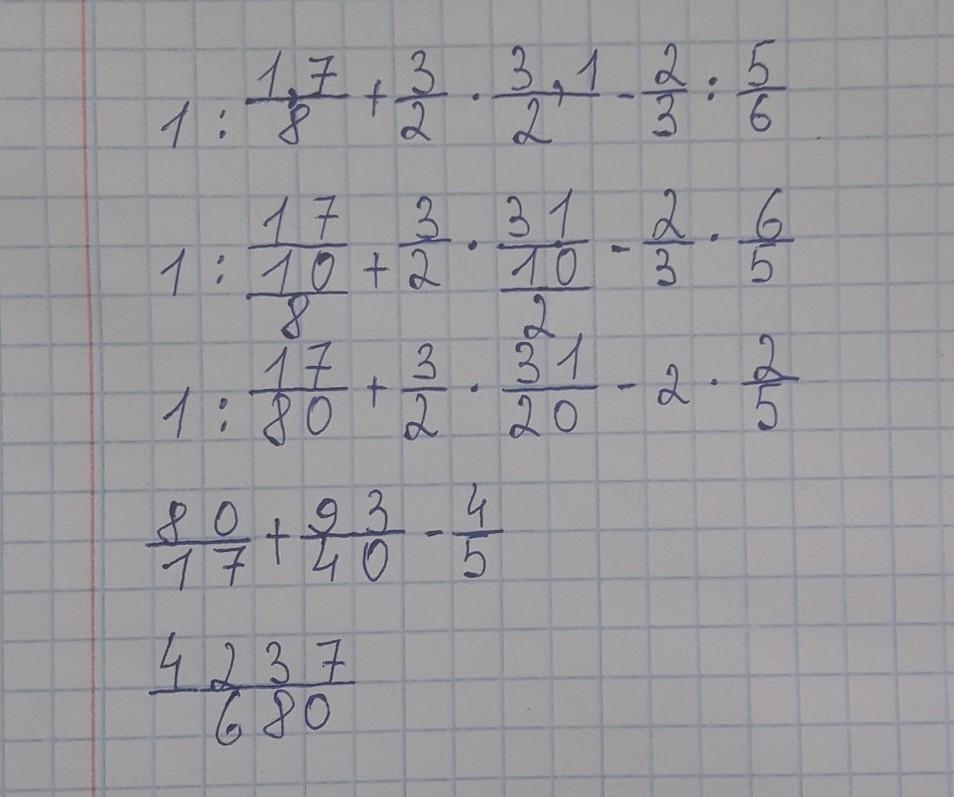 1 : 1,7/8 + 3/2 · 3,1/2 - 2/3 : 5/6
1 : 17/10/8 + 3/2 · 31/10/2 - 2/3 · 6/5
1 : 17/80 + 3/2 · 31/20 - 2 · 2/5
80/17 + 93/40 - 4/5
4237/680